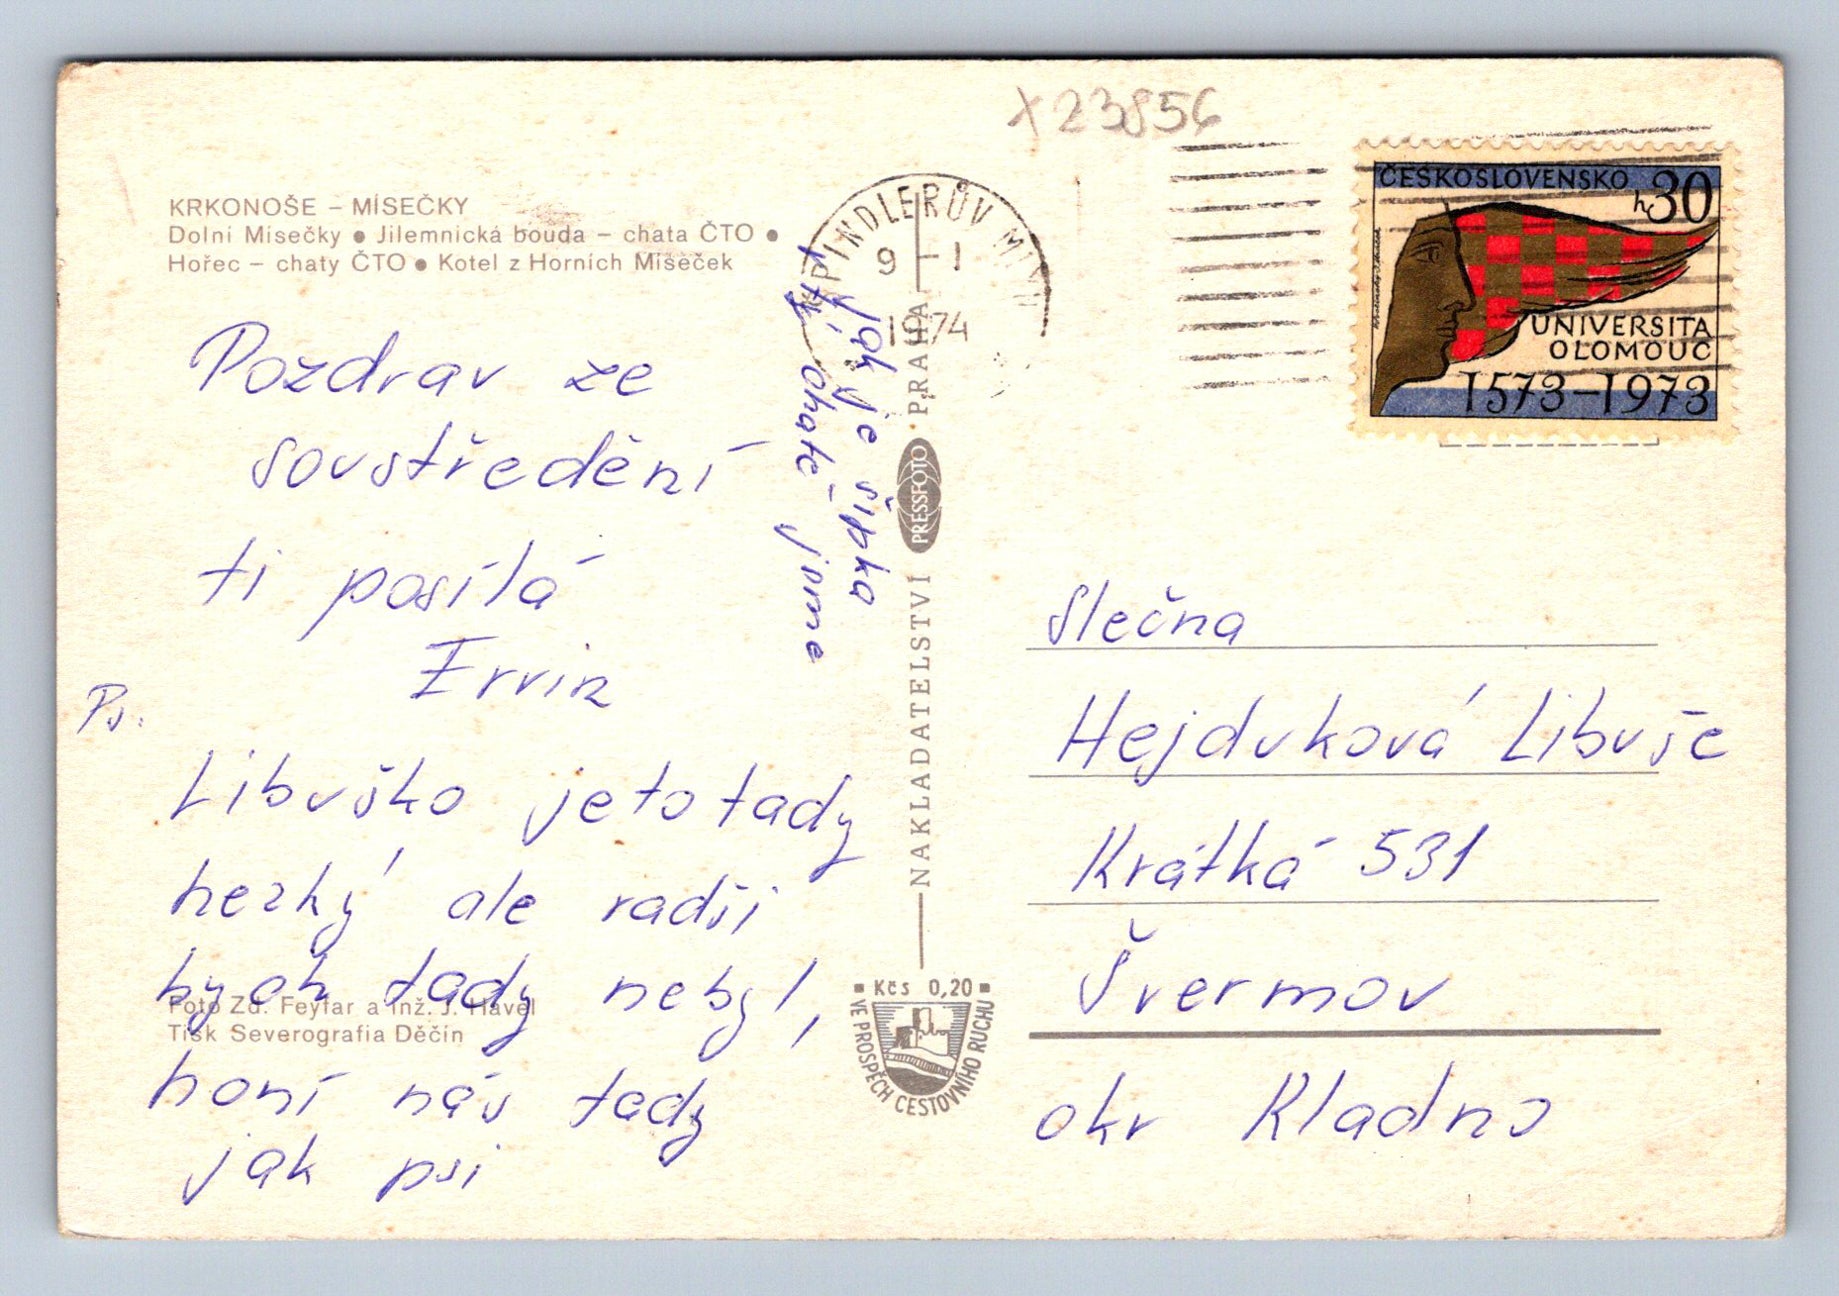 x23856
KRKONOŠE – MÍSEČKY
Dolní Mísečky ● Jilemnická bouda – chata ČTO ●
Hořec – chaty ČTO ● Kotel z Horních Míseček
Pozdrav ze
soustředění
ti posílá
Ervín
Ps.
Libuško jeto tady
hezký ale radši
bych tady nebyl,
honí nás tady
jak psi
jak je šipka
v tý chatě jsme
Foto Zd. Feyfar a inž. J. Havel
Tisk Severografia Děčín
NAKLADATELSTVÍ PRESSFOTO · PRAHA
Kčs 0,20
VE PROSPĚCH CESTOVNÍHO RUCHU
ŠPINDLERŮV MLÝN
9 -1
1974
ČESKOSLOVENSKO h 30
UNIVERSITA
OLOMOUC
1573–1973
Slečna
Hejduková Libuše
Krátká 531
Švermov
okr Kladno